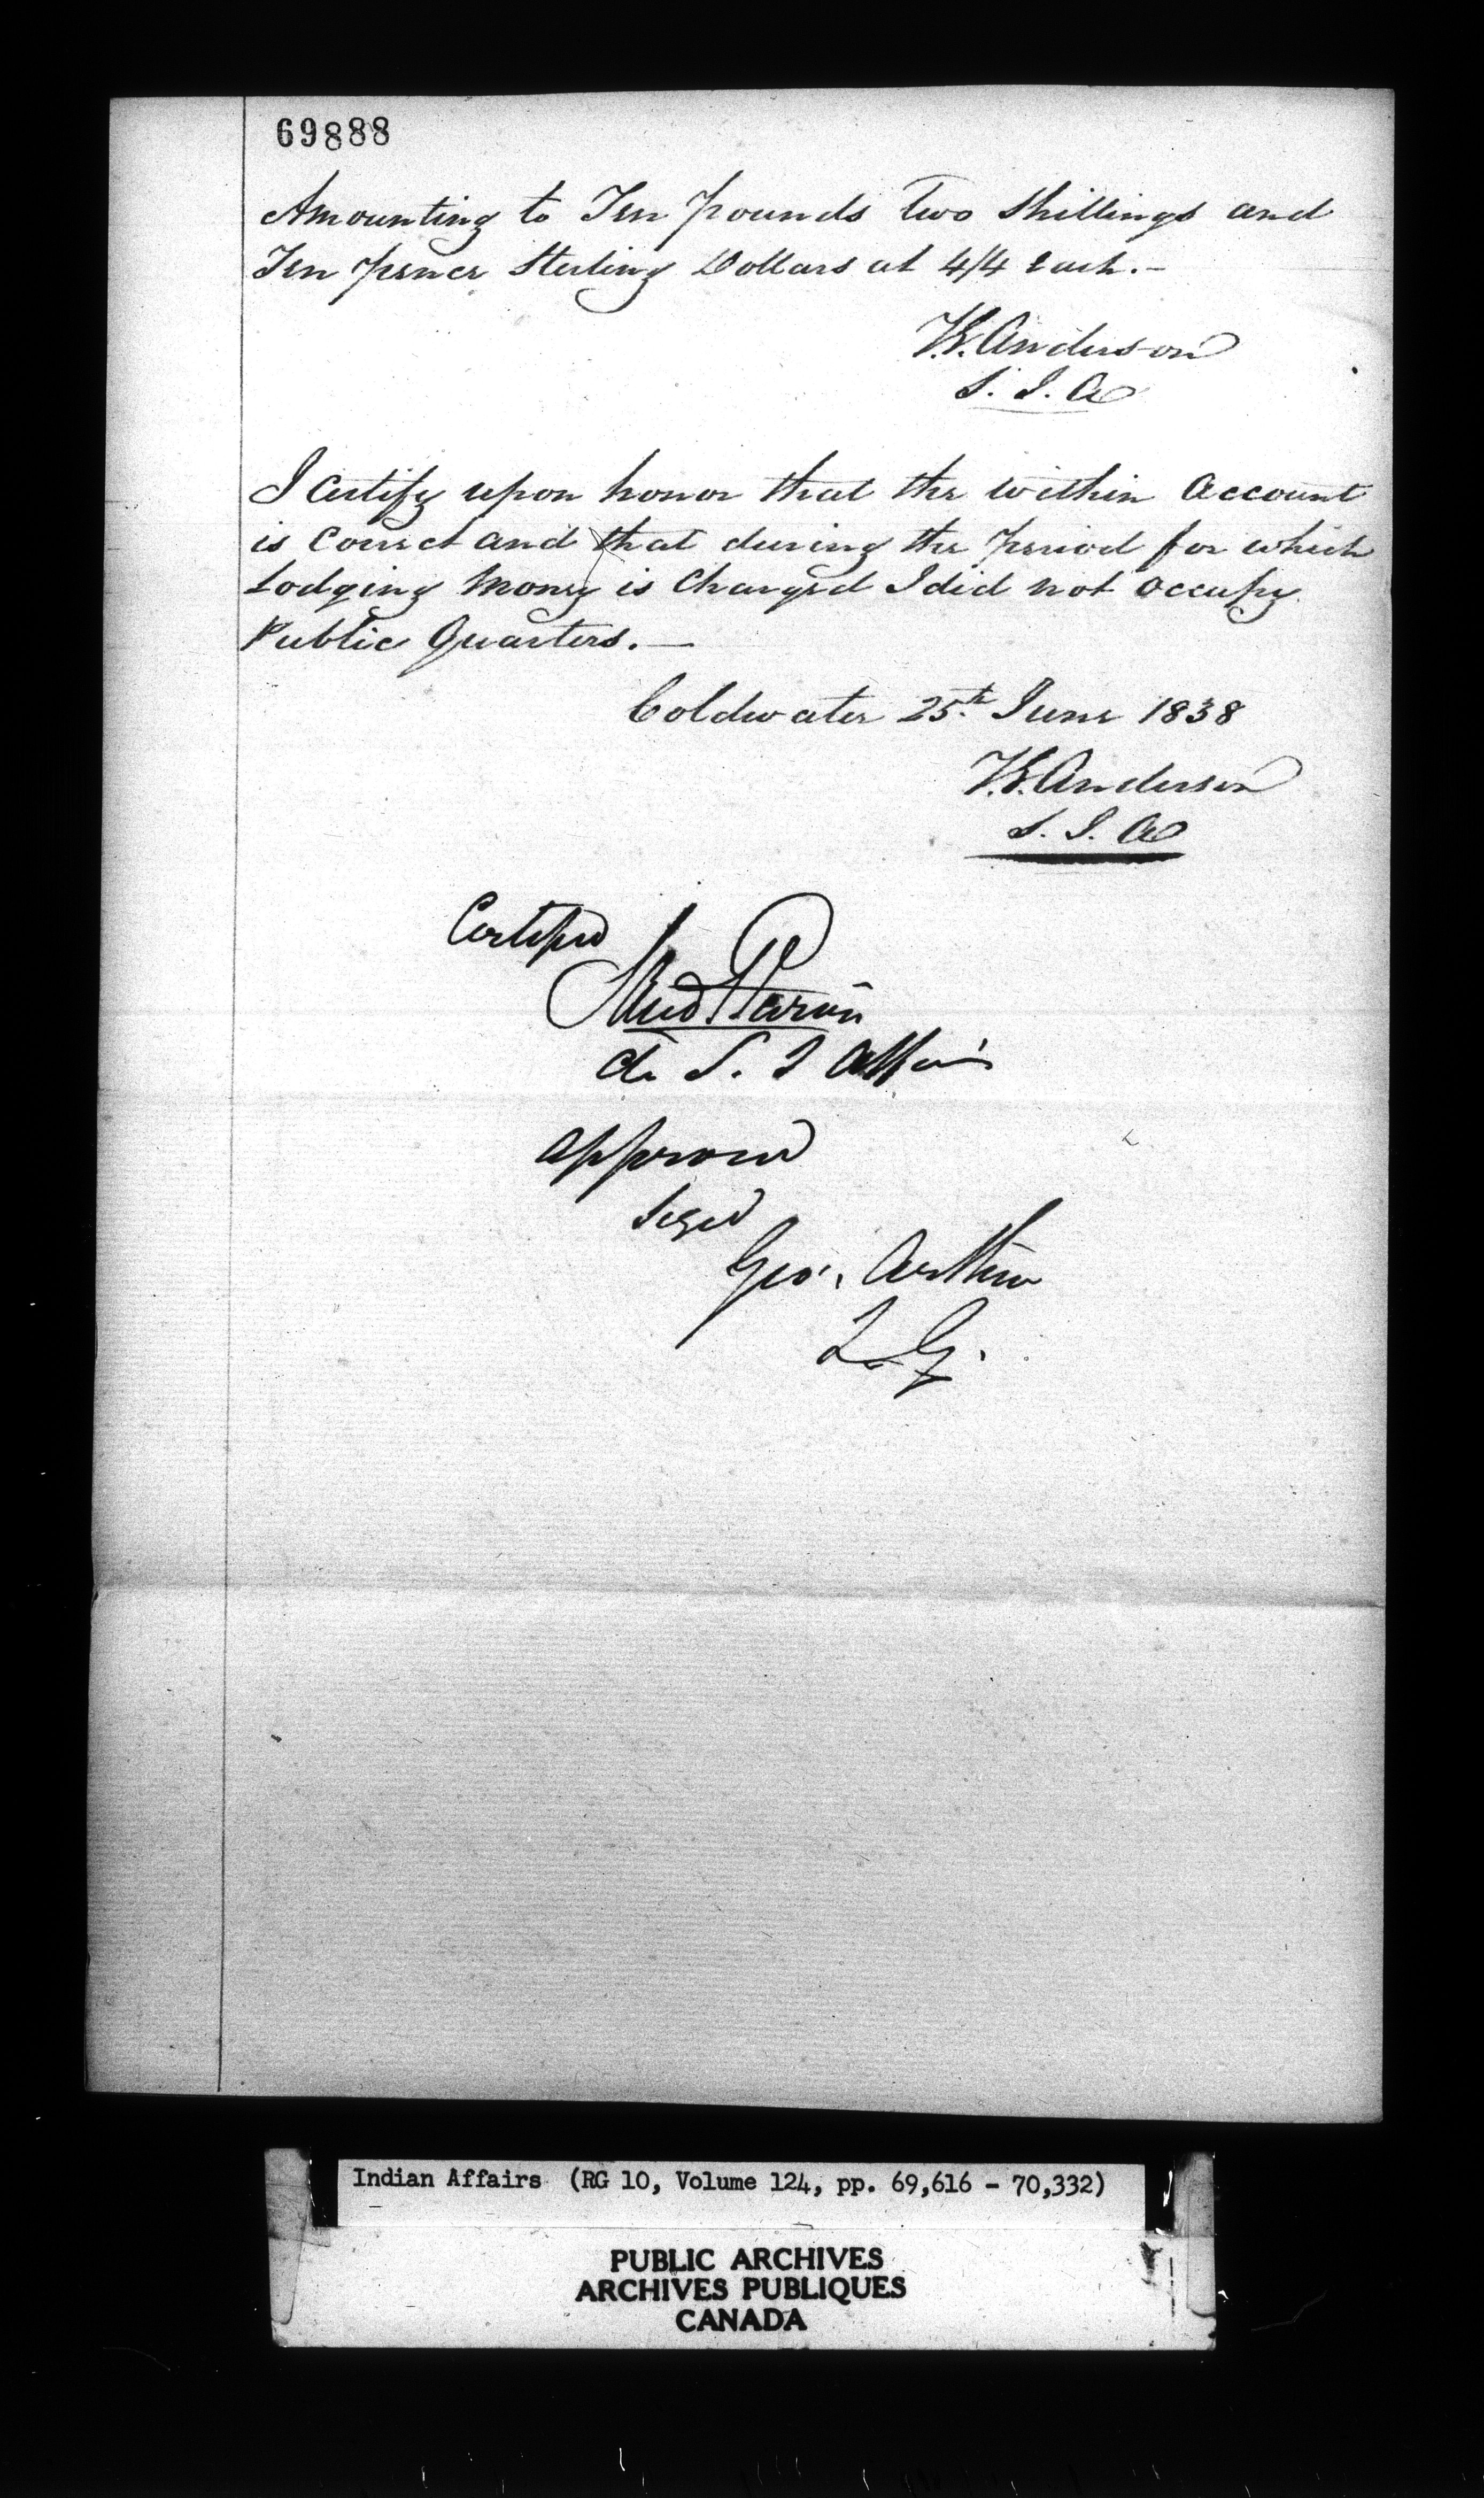 69888
Amounting to Ten Pounds Two Shillings and
Ten Pence Sterling Dollars at 4/4 Each.-
T.G. Anderson
S. I. A
I Certify upon honor that the within Account
is Correct and that during the Period for which
Lodging Money is Charged I did not occupy
Public Quarters.—
Coldwater 25th June 1838
T.G. Anderson
S. I. A
Certified
S. I Affairs
approved
Sigd
Geo. Arthur
L. G.
Indian Affairs (RG 10, Volume 124, pp. 69,616 - 70,332)
PUBLIC ARCHIVES
ARCHIVES PUBLIQUES
CANADA